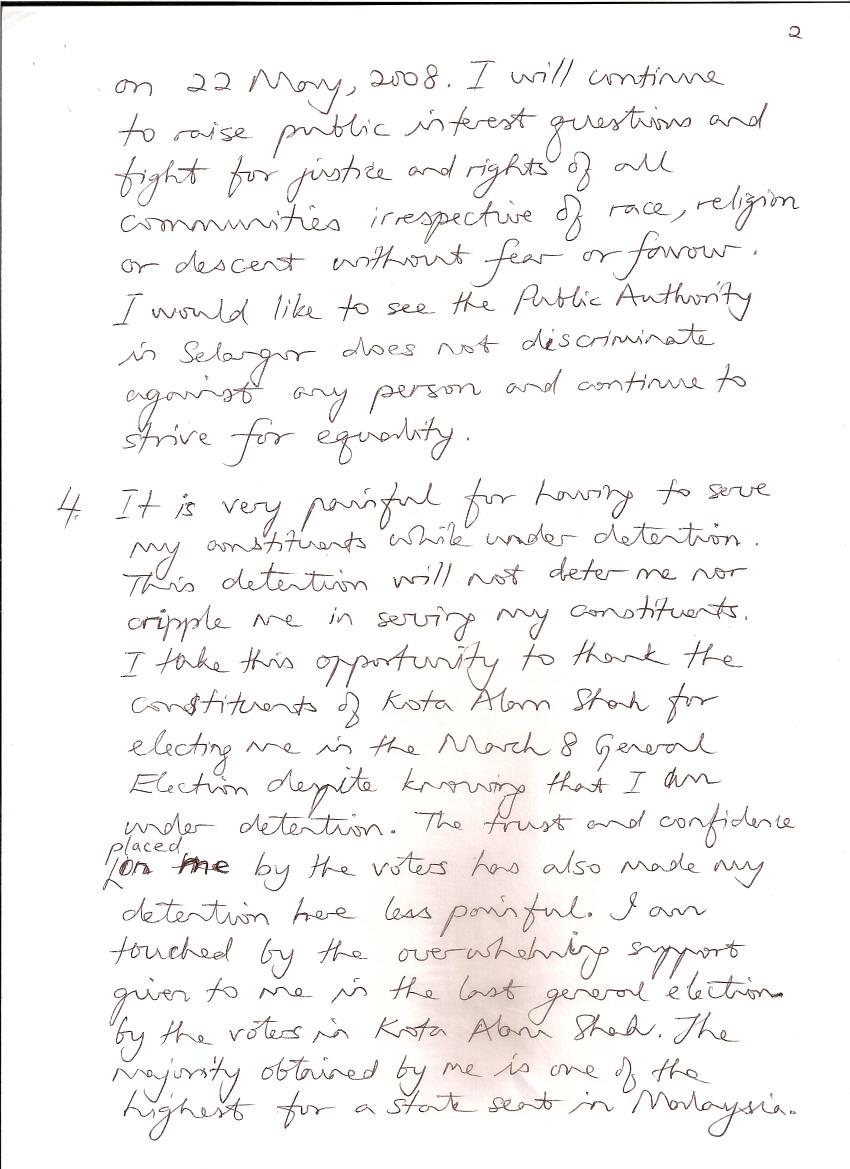 2
on 22 May, 2008. I will continue
to raise public interest questions and
fight for justice and rights of all
communities irrespective of race, religion
or descent without fear or favour.
I would like to see the Public Authority
in Selangor does not discriminate
against any person and continue to
strive for equality.
4. It is very painful for having to serve
my constituents while under detention.
This detention will not deter me nor
cripple me in serving my constituents.
I take this opportunity to thank the
constituents of Kota Alam Shah for
electing me in the March 8 General
Election despite knowing that I am
under detention. The trust and confidence
placed
on me by the voters has also made my
detention here less painful. I am
touched by the overwhelming support
given to me in the last general election
by the voters in Kota Alam Shah. The
majority obtained by me is one of the
highest for a state seat in Malaysia.